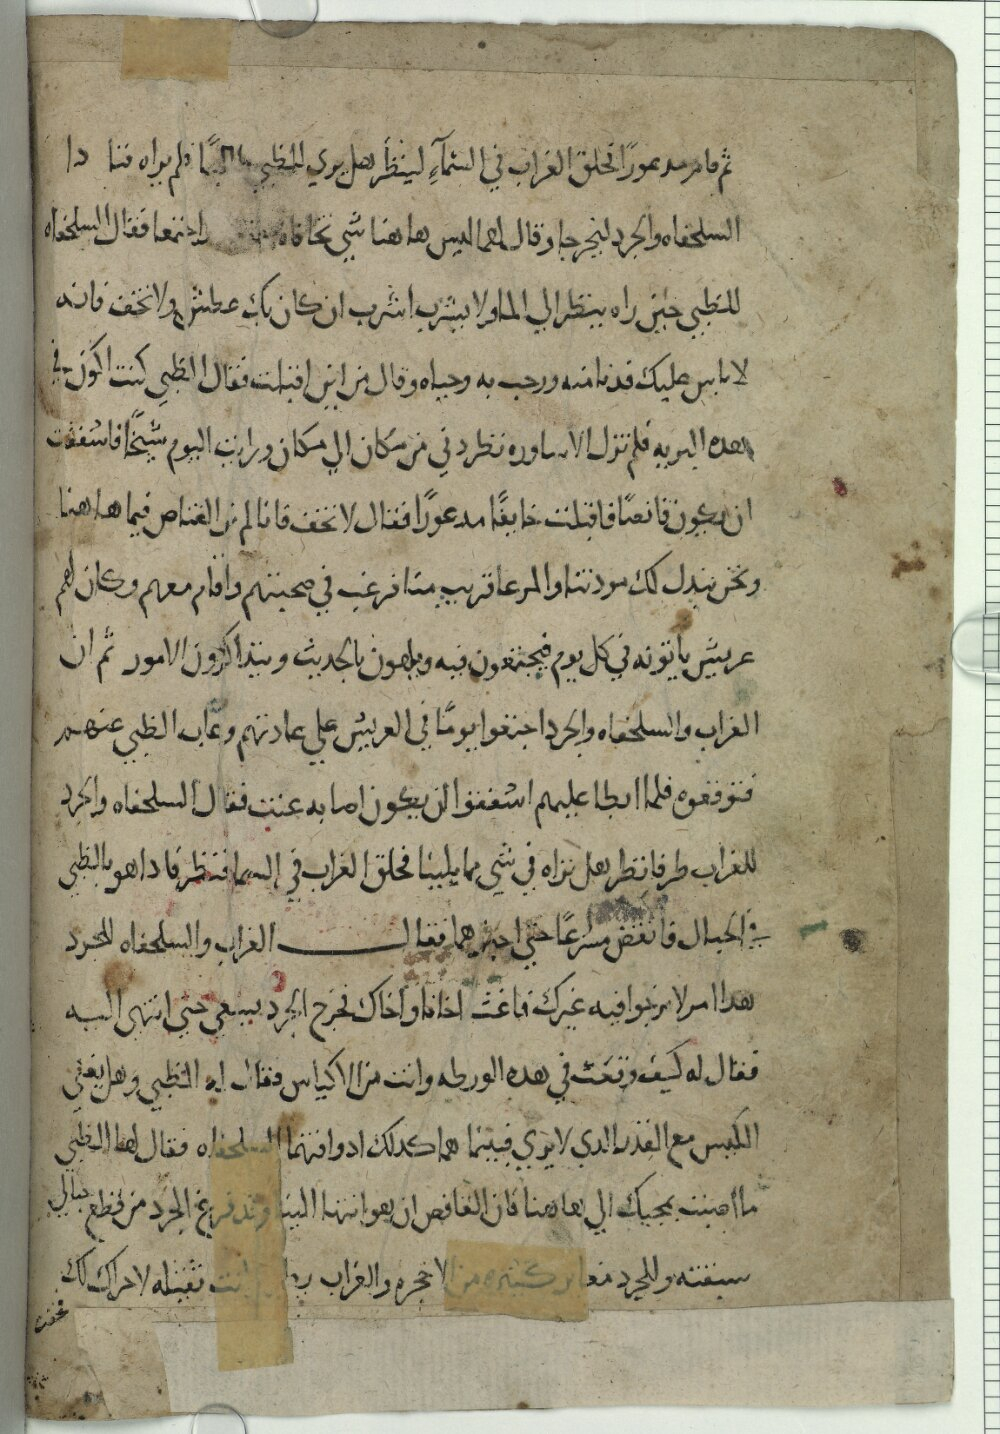 ثم قام مدعورًا فحلق الغراب في السمآء لينظر هل يري للظبي طالبًا فلم يراه فنا دا
السلحفاه والجرد ليخرجا وقال لهما ليس هاهنا شي نخافاه واجتمعا فقال السلحفاه
للظبي حين راه ينظر الي الما ولا يشرب اشرب ان كان بك عطش ولا تخف فانه
لا باس عليك فدنا منه ورحب به وحياه وقال من اين اقبلت فقال الظبي كنت اكون في
هده البريه فلم تزل الاساوره تطردني من مكان الي مكان ورايت اليوم شيخًا فاشفقت
ان يكون قانصًا فاقبلت خايفًا مدعورًا فقال لا تخف فانا لم نر القناص فيما هاهنا
ونحن نبدل لك مودتنا والمرعا قريب منا فرغب في صحبتهم واقام معهم وكان لهم
عريش ياتونه في كل يوم فيجتمعون فيه ويلهون بالحديث ويتداكرون الامور ثم ان
الغراب والسلحفاه والجرد اجتمعوا يومًا في العريش علي عادتهم وغاب الظبي عنهم
فتوقعوه فلما ابطا عليهم اشفقوا ان يكون اصابه عنت فقال السلحفاه والجرد
للغراب طر فانظر هل تراه في شي مما يلينا فحلق الغراب في السما فنظر فادا هو بالظبي
في الحبال فانقض مسرعًا حتي اخبرهما فقال الغراب والسلحفاه للجرد
هدا امر لا نرجوا فيه غيرك فاغث اخانا واخاك فخرج الجرد يسعي حتي انتهي اليه
فقال له كيف وقعت في هده الورطه وانت من الاكياس فقال له الظبي وهل يغني
الكيس مع القدر الدي لا يري فبينما هما كدلك اد وافتهما السلحفاه فقال لها الظبي
ما اصبت بمجيك الي هاهنا فان القانص ان هو انتها الينا وقد فرغ الجرد من قطع حبالي
سبقته وللجرد معا كثيره من الاجحره والغراب وانت ثقيله لا حراك لك
فخفت